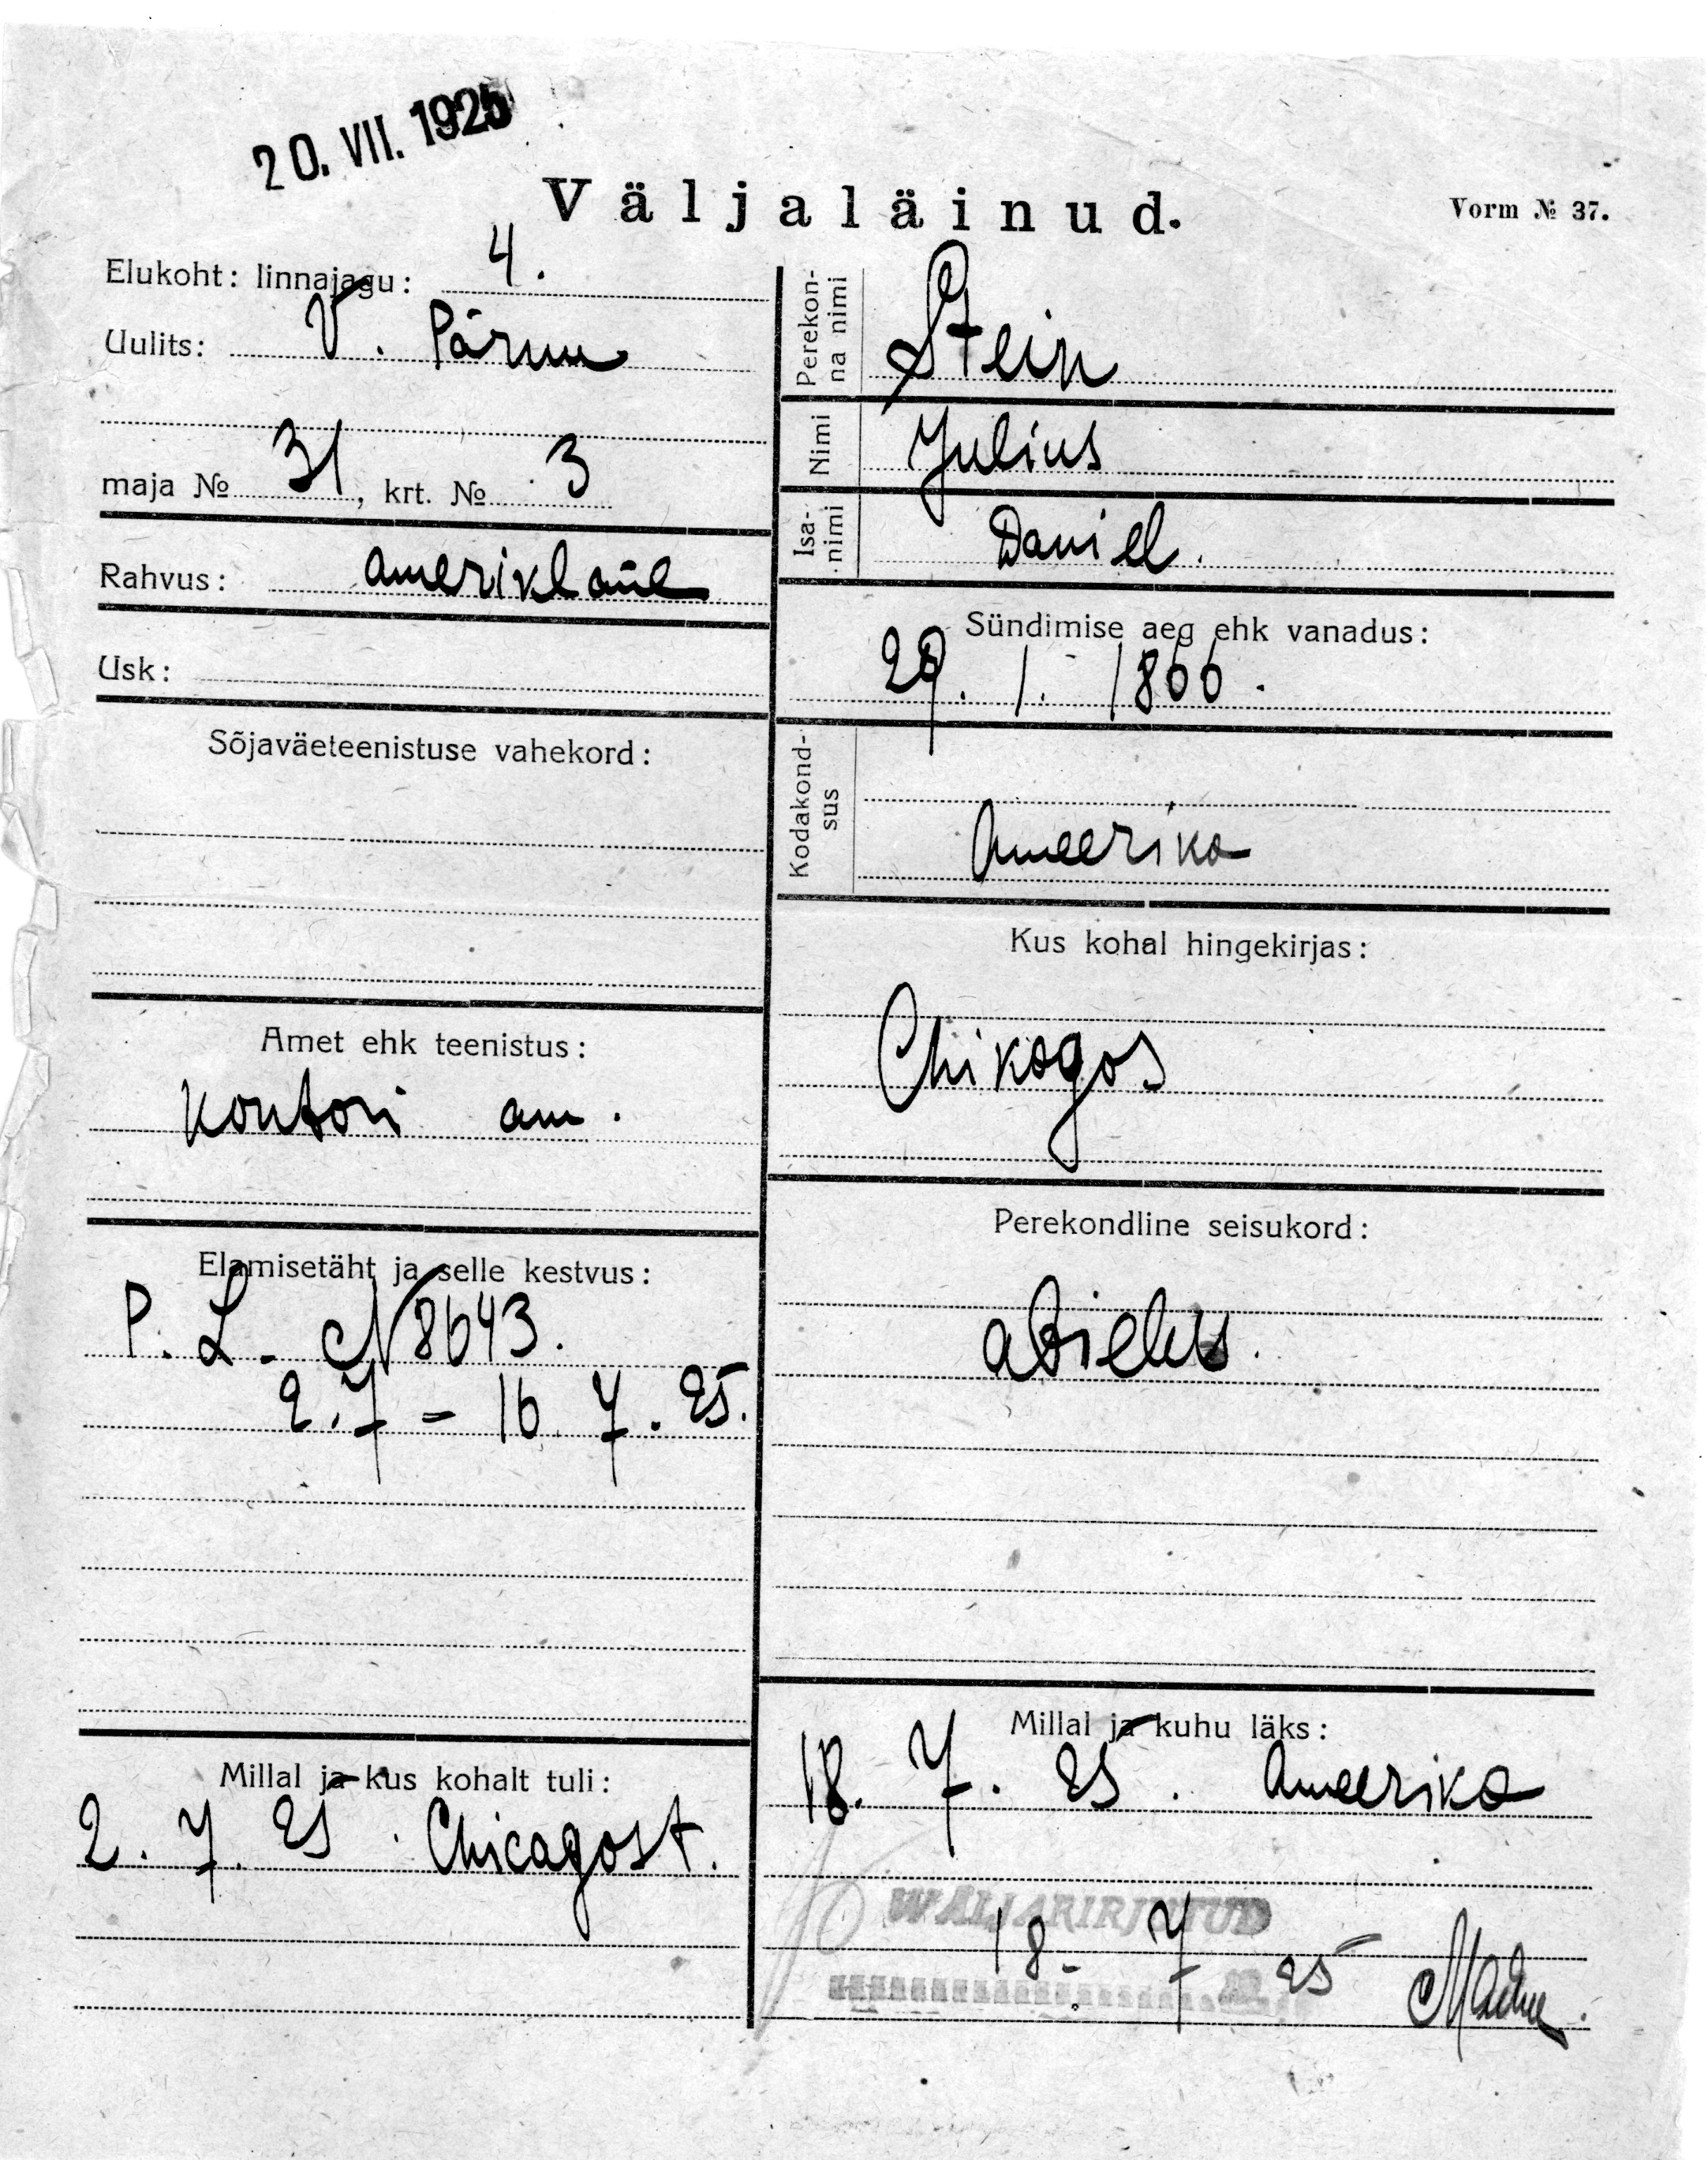 20. VII. 1925
Väljaläinud.
Vorm № 37.
Elukoht: linnajagu: 4.
Uulits: V. Pärnu
maja № 31, krt. № 3
Rahvus: ameriklane
Usk:
Sõjaväeteenistuse vahekord:
Amet ehk teenistus:
Kontori am.
Elamisetäht ja selle kestvus:
P. L. N 8643.
2.7 - 16.7.25.
Millal ja kus kohalt tuli:
2. 7. 25. Chicagost.
Perekon-
na nimi
Stein
Nimi
Julius
Isa-
nimi
Daniel.
Sündimise aeg ehk vanadus:
29. 1. 1866.
Kodakond-
sus
Ameerika
Kus kohal hingekirjas:
Chikagos
Perekondline seisukord:
abielus.
Millal ja kuhu läks:
18. 7. 25. Ameerika
WÄLJAKIRJUTUD
18. 7 25